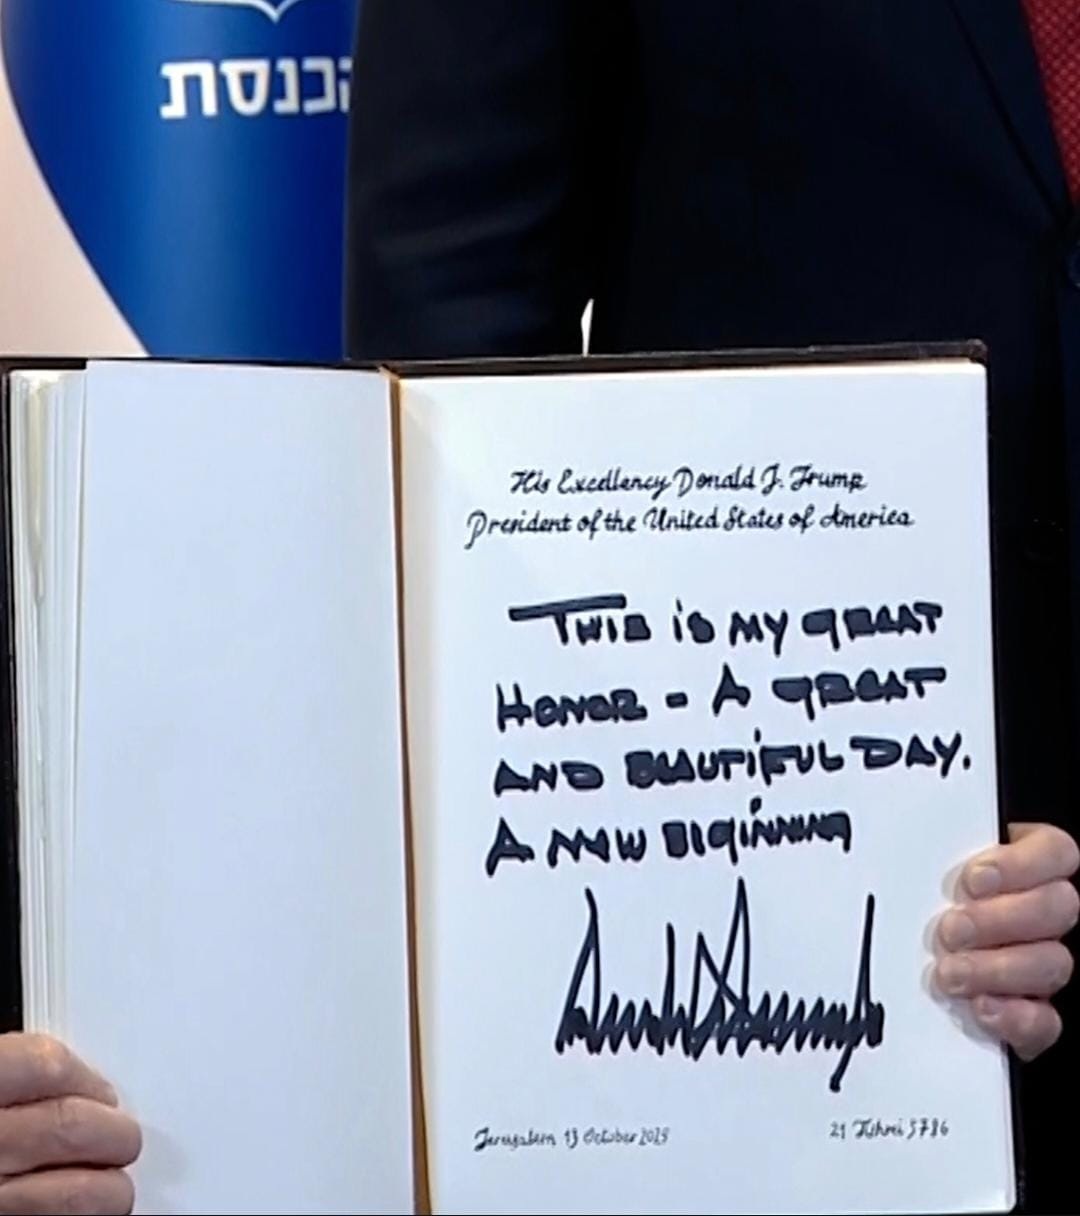 הכנסת
His Excellency Donald J. Trump
President of the United States of America
THIS IS MY GREAT
HONOR - A GREAT
AND BEAUTIFUL DAY.
A NEW BIGINNING
Jerusalem 13 October 2025
21 Tishrei 5786